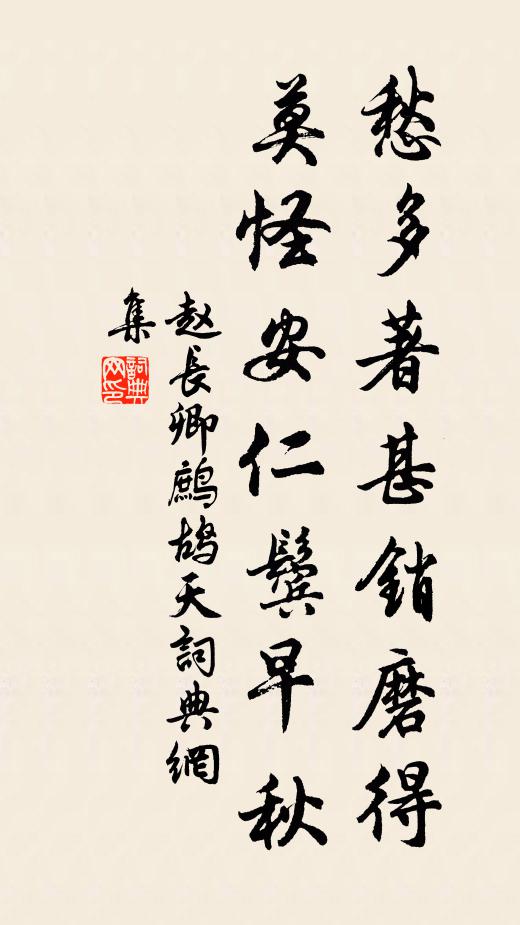 愁多著甚銷磨得
莫怪安仁鬓早秋
赵長卿鷓鸪天詞典網
集
詞典网印